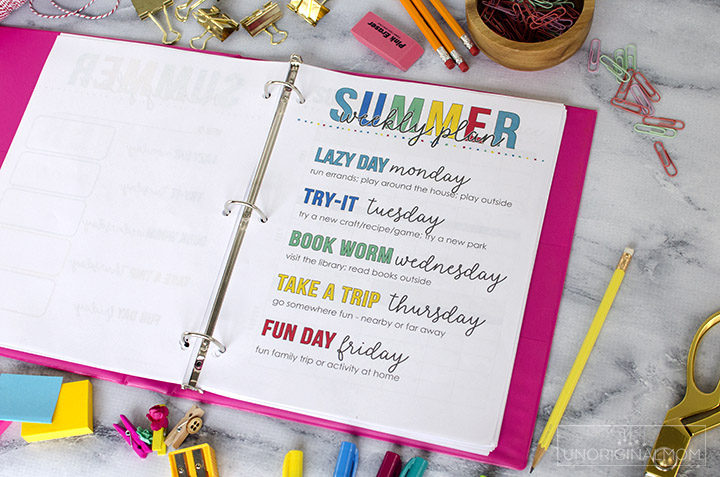 Pink Eraser
SUMMER
weekly plan
LAZY DAY monday
run errands; play around the house; play outside
TRY-IT tuesday
try a new craft/recipe/game; try a new park
BOOK WORM wednesday
visit the library; read books outside
TAKE A TRIP thursday
go somewhere fun - nearby or far away
FUN DAY friday
fun family trip or activity at home
UNORIGINAL MOM